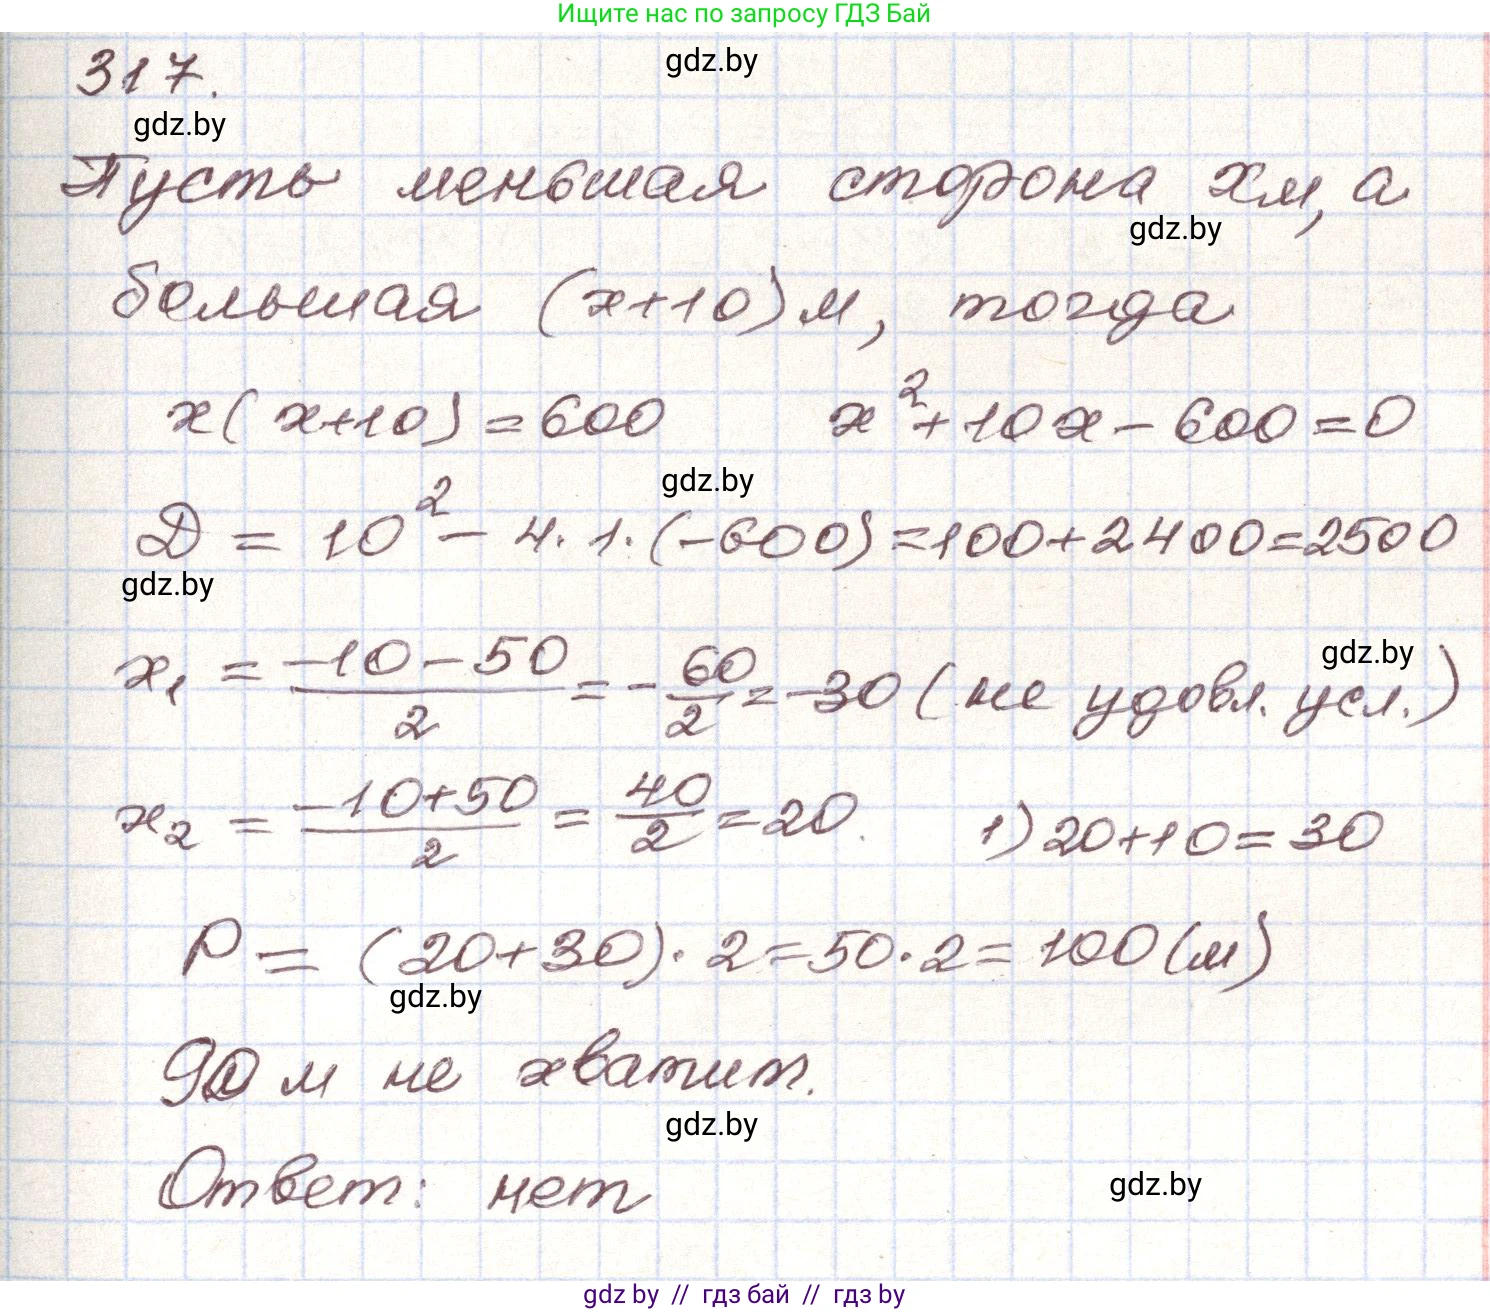 Ищите нас по запросу ГДЗ Бай
317.
gdz.by
gdz.by
Пусть меньшая сторона x м, а
gdz.by
большая (x+10) м, тогда
x(x+10)=600 x²+10x-600=0
gdz.by
D = 10² - 4·1·(-600)=100+2400=2500
gdz.by
gdz.by
x₁ = (-10-50)/2 = -60/2 = -30 (не удовл. усл.)
x₂ = (-10+50)/2 = 40/2 = 20. 1) 20+10=30
P = (20+30)·2=50·2=100 (м)
gdz.by
90 м не хватит.
gdz.by
Ответ: нет
gdz.by
gdz.by // гдз бай // гдз by